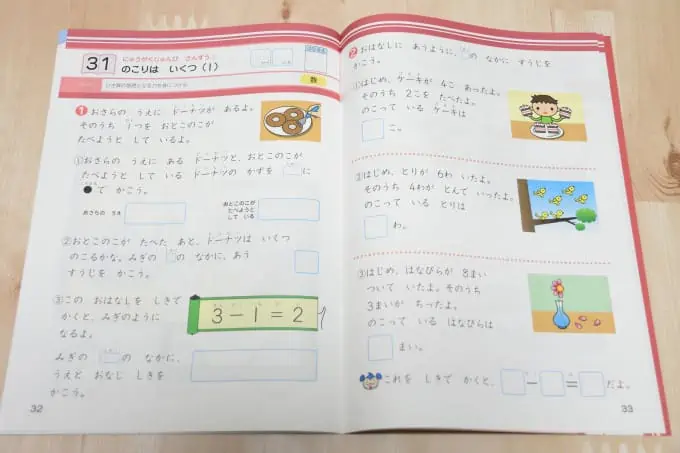 31
にゅうがくじゅんび さんすう
のこりは いくつ(1)
数
1 おさらの うえに ドーナツが あるよ。
そのうち 1つを おとこのこが
たべようと して いるよ。
①おさらの うえに ある ドーナツと、おとこのこが
たべようと して いる ドーナツの かずを に
●で かこう。
おさらの うえ
おとこのこが
たべようと
して いる
②おとこのこが たべた あと、ドーナツは いくつ
のこるかな。みぎの の なかに、あう
すうじを かこう。
③この おはなしを しきで
かくと、みぎのように
なるよ。
3-1=2
みぎの の なかに、
うえと おなじ しきを
かこう。
32
2 おはなしに あうように、 の なかに すうじを
かこう。
①はじめ、ケーキが 4こ あったよ。
そのうち 2こを たべたよ。
のこって いる ケーキは
こ。
②はじめ、とりが 6わ いたよ。
そのうち 4わが とんで いったよ。
のこって いる とりは
わ。
③はじめ、はなびらが 8まい
ついて いたよ。そのうち
3まいが ちったよ。
のこって いる はなびらは
まい。
これを しきで かくと、 - = だよ。
33